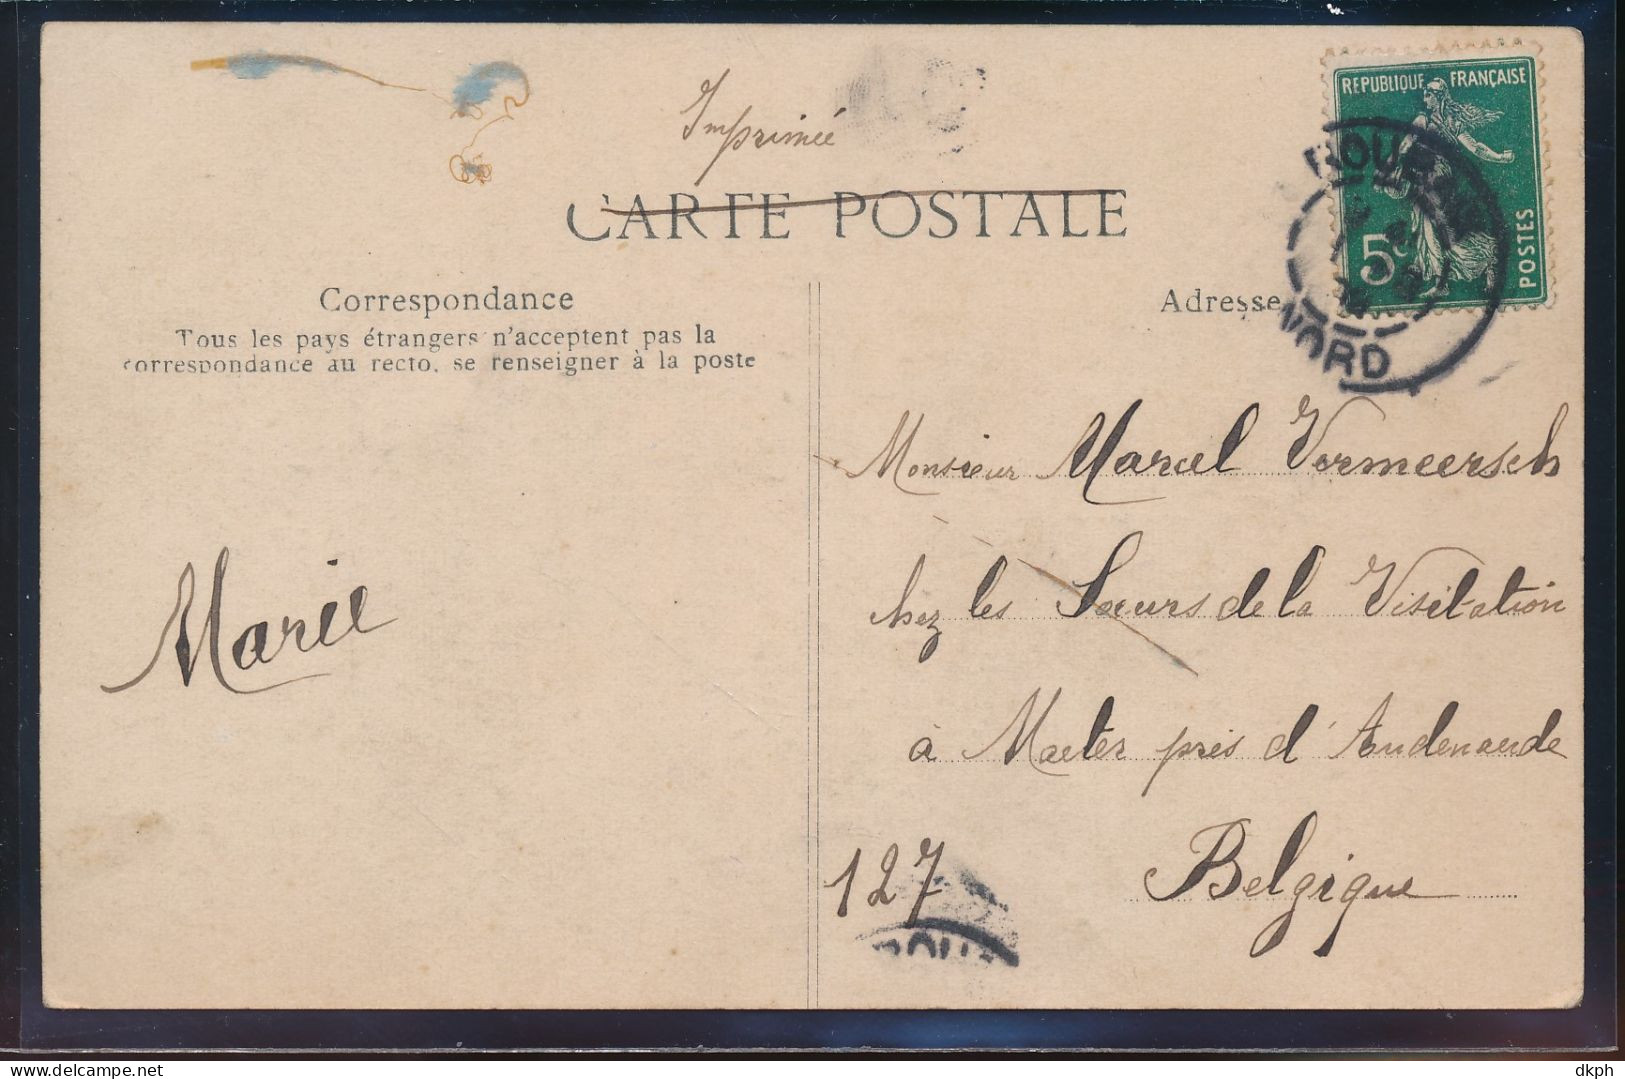 Imprimée
CARTE POSTALE
REPUBLIQUE FRANÇAISE
5c
POSTES
ROUBAIX
NORD
Correspondance
Tous les pays étrangers n'acceptent pas la
correspondance au recto, se renseigner à la poste
Adresse
Marie
Monsieur Marcel Vermeersch
chez les Sœurs de la Visitation
à Maeter près d'Audenaerde
Belgique
127
ROU
delcampe.net
dkph